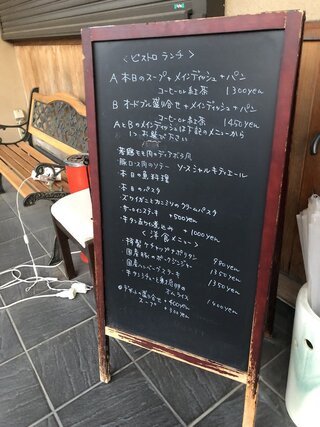 <ビストロ ランチ>
A 本日のスープ + メインディッシュ + パン
コーヒーor紅茶 1300yen
B オードブル盛り合せ + メインディッシュ + パン
コーヒーor紅茶 1450yen
AとBのメインディッシュは下記のメニューから
1つお選び下さい
・若鶏もも肉のディアボラ風
・豚ロース肉のソテー ソースシャルキティエール
・本日の魚料理
・本日のパスタ
・ズワイガニとカニミソのクリームパスタ
ステーキ +500yen
・牛タン 煮込み +1000yen
<洋食メニュー>
・特製ケチャップナポリタン 980yen
国産豚のポークジンジャー 1350yen
国産ハンバーグステーキ 1350yen
オムライス 1400yen
盛り合せ +400yen
スープ +300yen